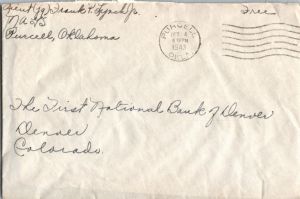 Frank P. Lynch Jr.
N A G S
Purcell, Oklahoma
PURCELL
1943
OKLA
Free
The First National Bank of Denver
Denver
Colorado.